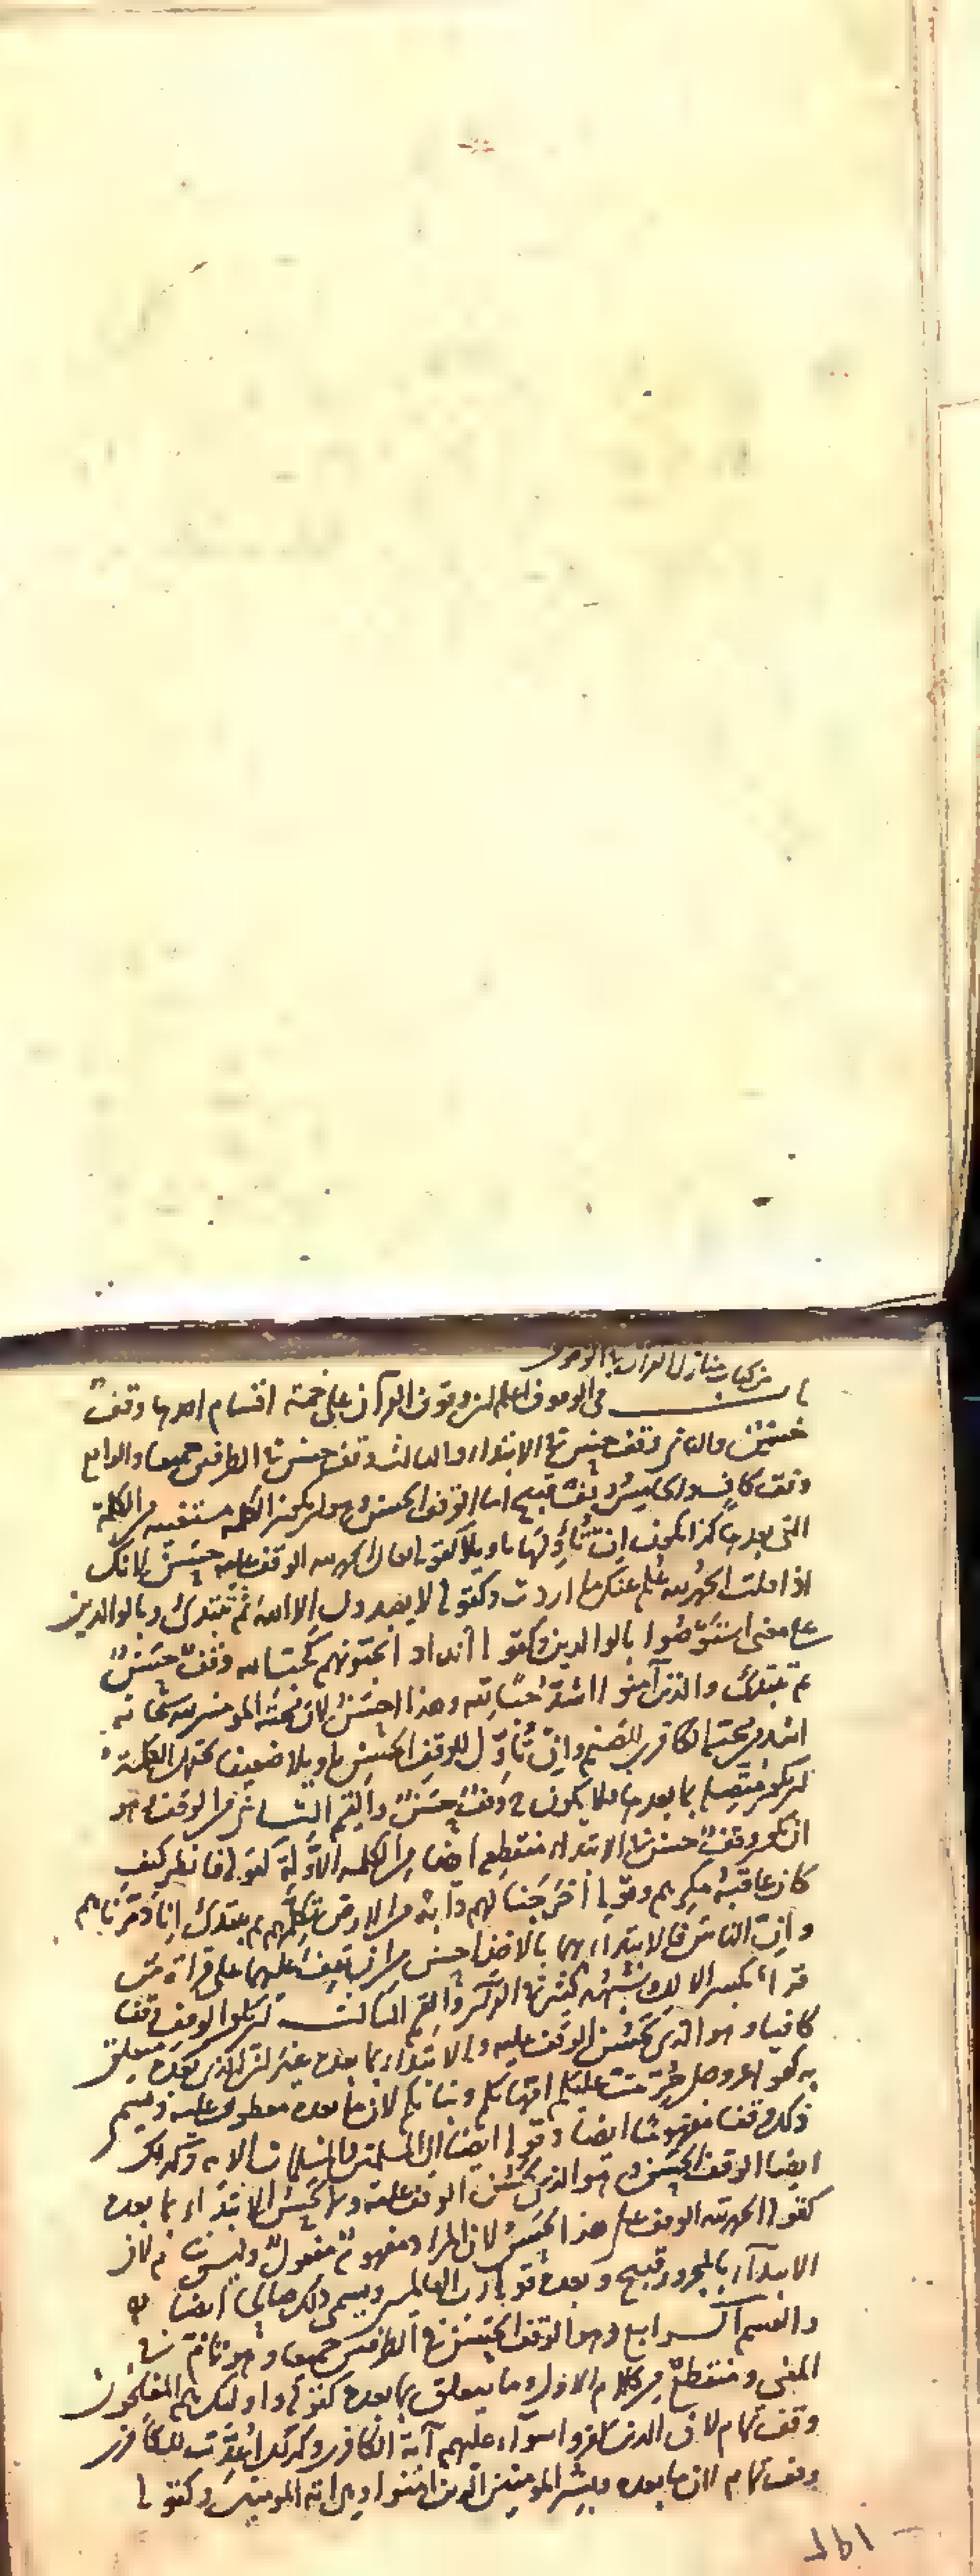 من كتاب منازل القرآن في الوقوف
باب في الوقوف اعلم ان وقوف القرآن على خمسة اقسام احدها وقف
حسن والثاني وقف حسن في الابتداء والثالث وقف حسن في الطرفين جميعا والرابع
وقف كاف وقف قبيح اما الوقف الحسن وهو ان يكون الكلمة مستغنيه من الكلمة
التي بعدها كذا يجوز ان تتأولها تاويلا كقوله تعال الحمد لله الوقف عليه حسن لانك
اذا قلت الحمد لله علم عنك ما اردت وكقوله لا يعبدون الا الله ثم تبتدئ وبالوالدين
على معنى استوصوا بالوالدين وكقوله اندادا يحبونهم كحب الله وقف حسن
ثم تبتدئ والذين آمنوا اشد حبا لله وهذا احسن لان محبة المومنين لله سبحانه
اشد من محبة الكافرين للصنم وان تأول الوقف الحسن تاويلا ضعيفا
متصلا بما بعدها فلا يكون وقف حسن والقسم الثاني من الوقف هو
ان يكون وقف حسن في الابتداء منقطع ايضا من الكلمة الاولة كقوله فانظر كيف
كان عاقبة مكرهم وقوله اخرجنا لهم دابة من الارض تكلمهم ثم يبتدئ انا دمرناهم
وان الناس فالابتداء بهما بالاضا احسن من ان تقف عليهما على قراءة من
قرأ بكسر الالف وشبهه كثير في القرآن والقسم الثالث ان يكون الوقف وقفا
كافيا وهو الذي يحسن الوقف عليه والابتداء بما بعده غير ان الذي بعده متعلق
به كقوله عز وجل حرمت عليكم امهاتكم وبناتكم لان ما بعده معطوف عليه ويسمى
ذلك وقفا مفهوما ايضا وقوله ايضا ان المسلمين والمسلمات الايه وكذلك
ايضا الوقف الحسن وهو الذي يحسن الوقف عليه ولا يحسن الابتداء بما بعده
كقوله الحمد لله الوقف على هذا يحسن لان المراد مفهوم
الابتداء بالمجرور قبيح وبعده قوله رب العالمين ويسمى ذلك ايضا
والقسم الرابع وهو الوقف الحسن في الطرفين جميعا وهو تام في
المعنى ومنقطع من كلام الاول وما يتعلق بما بعده كقوله واولئك هم المفلحون
وقف تمام لان الذين كفروا سوآء عليهم آية الكافرين وكذلك اعدت للكافرين
وقف تمام لان ما بعده وبشر المومنين الذين امنوا وهي اية المومنين وكقوله